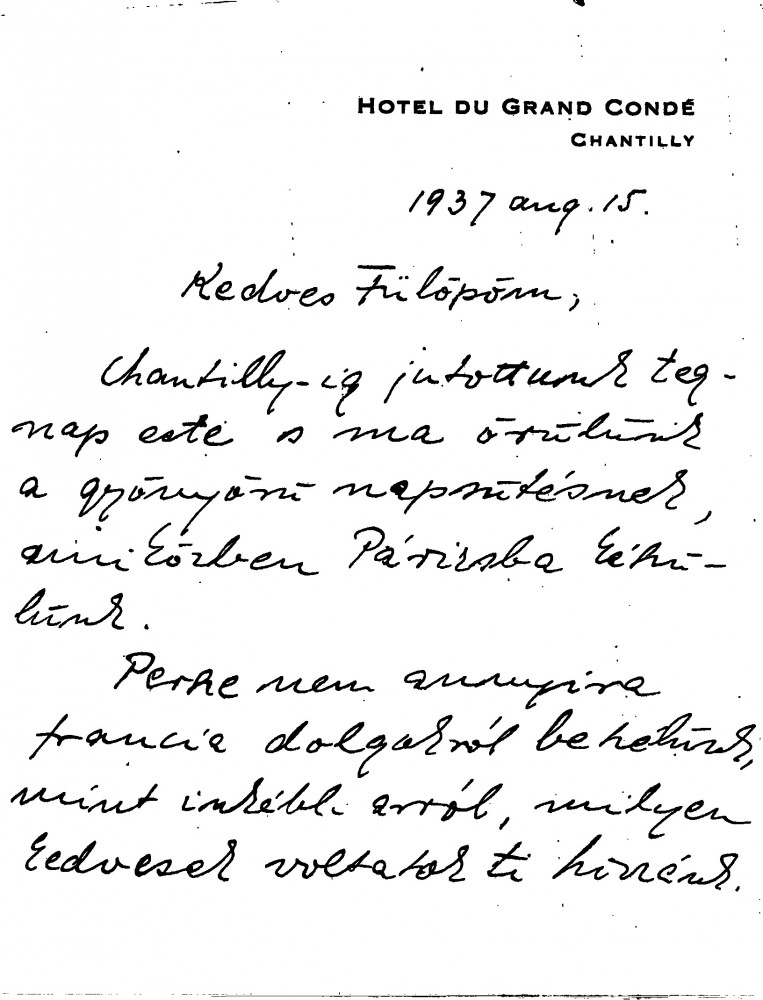 HOTEL DU GRAND CONDÉ
CHANTILLY
1937 aug. 15.
Kedves Fülöpöm,
Chantilly-ig jutottunk teg-
nap este s ma örülünk
a gyönyörű napsütésnek,
miközben Párizsba készü-
lünk.
Persze nem annyira
francia dolgokról beszélünk,
mint inkább arról, milyen
kedvesek voltatok ti hozzánk.